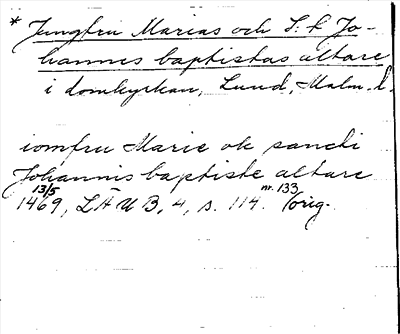 * Jungfru Marias och S:t Jo-
hannis baptistas altare
i domkyrkan, Lund, Malm. l.
iomfru Marie ok sancti
Johannis baptiste altare
13/5 1469, LÄUB, 4, s. 114. nr. 133 (orig.